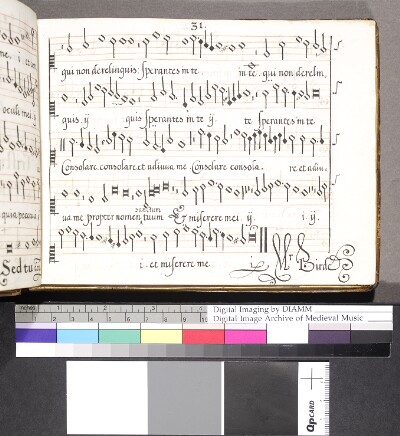 31.
qui non derelinquis sperantes in te. in te. qui non derelin,
quis. ij quis sperantes in te ij. te sperantes in te
Consolare. consolare. et adiuua me. Consolare consola. re et adiu.
sanctum
ua me propter nomen tuum & miserere mei ij. i. ij.
i. et miserere me. i. Mr Birde
oculi mei
quia peccaui
Sed tu
inches 1 2 3
1 2 3 4 5 6 7 8 9 10
Digital Imaging by DIAMM
Digital Image Archive of Medieval Music
QPCARD